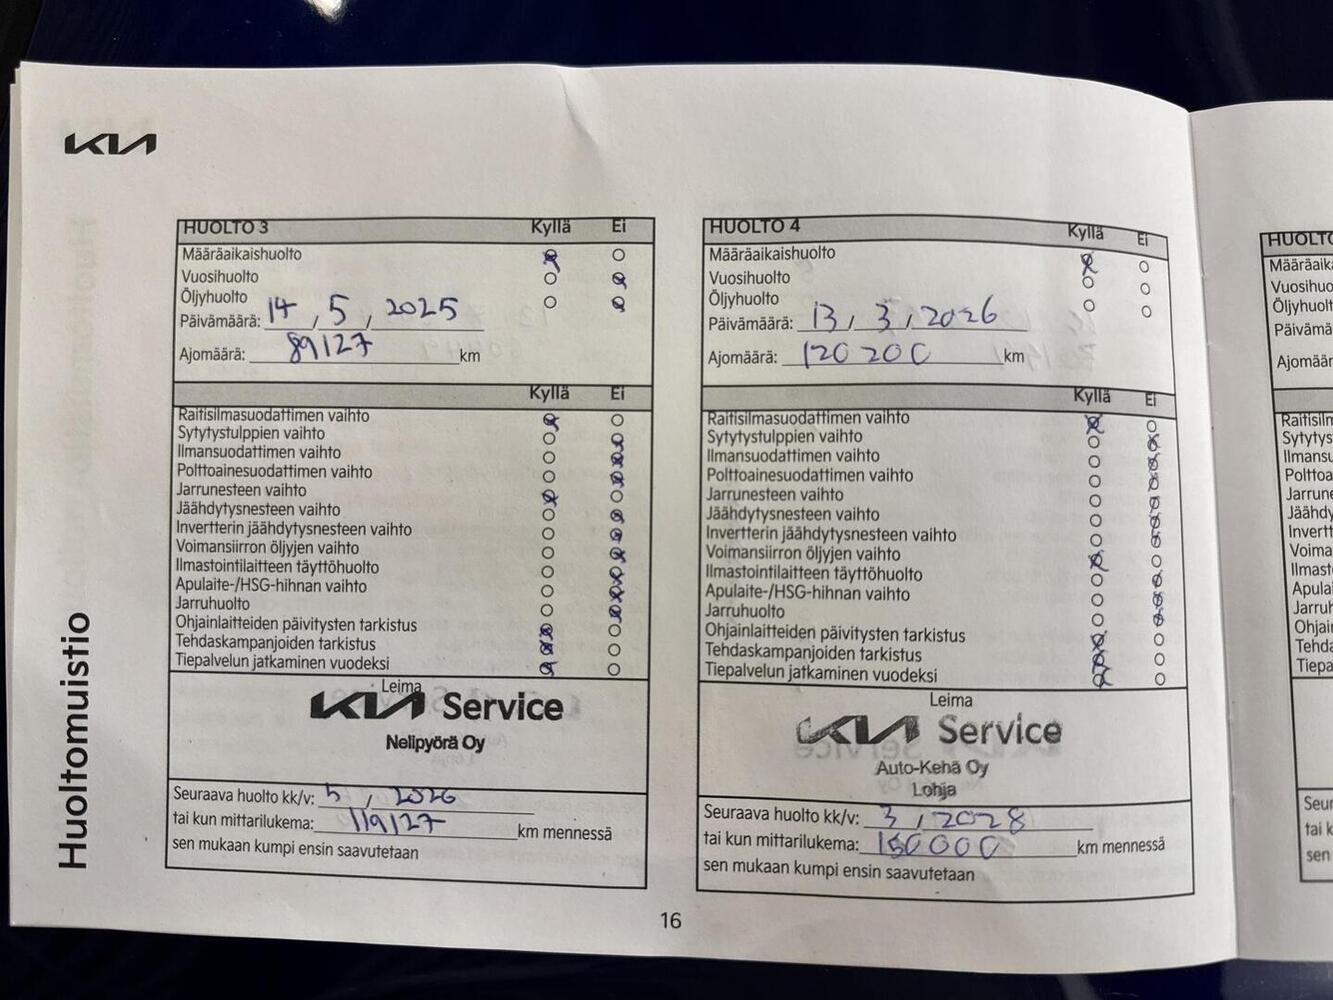 KIA
Huoltomuistio
HUOLTO 3 Kyllä Ei
Määräaikaishuolto
Vuosihuolto
Öljyhuolto
Päivämäärä: 14 , 5 , 2025
Ajomäärä: 89127 km
Kyllä Ei
Raitisilmasuodattimen vaihto
Sytytystulppien vaihto
Ilmansuodattimen vaihto
Polttoainesuodattimen vaihto
Jarrunesteen vaihto
Jäähdytysnesteen vaihto
Invertterin jäähdytysnesteen vaihto
Voimansiirron öljyjen vaihto
Ilmastointilaitteen täyttöhuolto
Apulaite-/HSG-hihnan vaihto
Jarruhuolto
Ohjainlaitteiden päivitysten tarkistus
Tehdaskampanjoiden tarkistus
Tiepalvelun jatkaminen vuodeksi
Leima
KIA Service
Nelipyörä Oy
Seuraava huolto kk/v: 5 , 2026
tai kun mittarilukema: 119127 km mennessä
sen mukaan kumpi ensin saavutetaan
HUOLTO 4 Kyllä Ei
Määräaikaishuolto
Vuosihuolto
Öljyhuolto
Päivämäärä: 13 , 3 , 2026
Ajomäärä: 120 200 km
Kyllä Ei
Raitisilmasuodattimen vaihto
Sytytystulppien vaihto
Ilmansuodattimen vaihto
Polttoainesuodattimen vaihto
Jarrunesteen vaihto
Jäähdytysnesteen vaihto
Invertterin jäähdytysnesteen vaihto
Voimansiirron öljyjen vaihto
Ilmastointilaitteen täyttöhuolto
Apulaite-/HSG-hihnan vaihto
Jarruhuolto
Ohjainlaitteiden päivitysten tarkistus
Tehdaskampanjoiden tarkistus
Tiepalvelun jatkaminen vuodeksi
Leima
KIA Service
Auto-Kehä Oy
Lohja
Seuraava huolto kk/v: 3 , 2028
tai kun mittarilukema: 150000 km mennessä
sen mukaan kumpi ensin saavutetaan
16